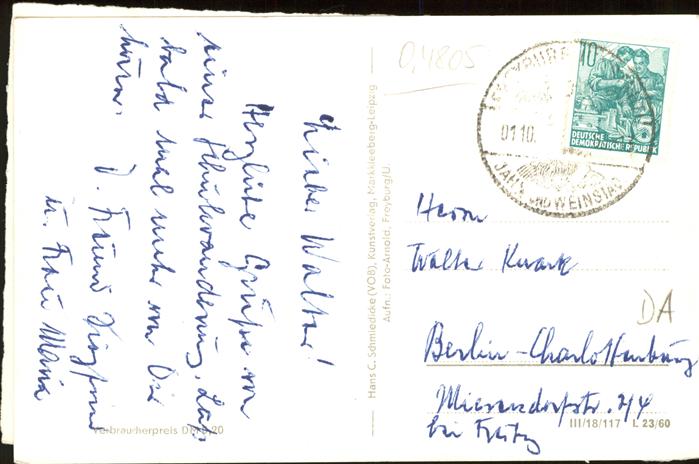 Lieber Walter!
Herzliche Grüße von
einer Schulwanderung. Laß
bald mal mehr von Dir
hören. D. Freund Siegfried
u. Frau Maria
Verbraucherpreis DM 0,20
Hans C. Schmiedicke (VOB), Kunstverlag, Markkleeberg-Leipzig
Aufn.: Foto-Arnold, Freyburg/U.
0,4805
10
DEUTSCHE
DEMOKRATISCHE REPUBLIK
FREYBURG
01.10.
JAHN- UND WEINSTADT
Herrn
Walter Kwark
DA
Berlin-Charlottenburg
2/4
bei
III/18/117 L 23/60